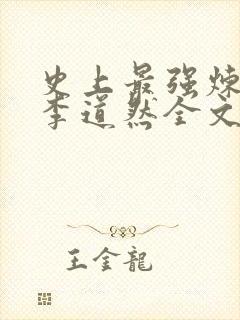 史上最强炼
李道然全文
王金龍